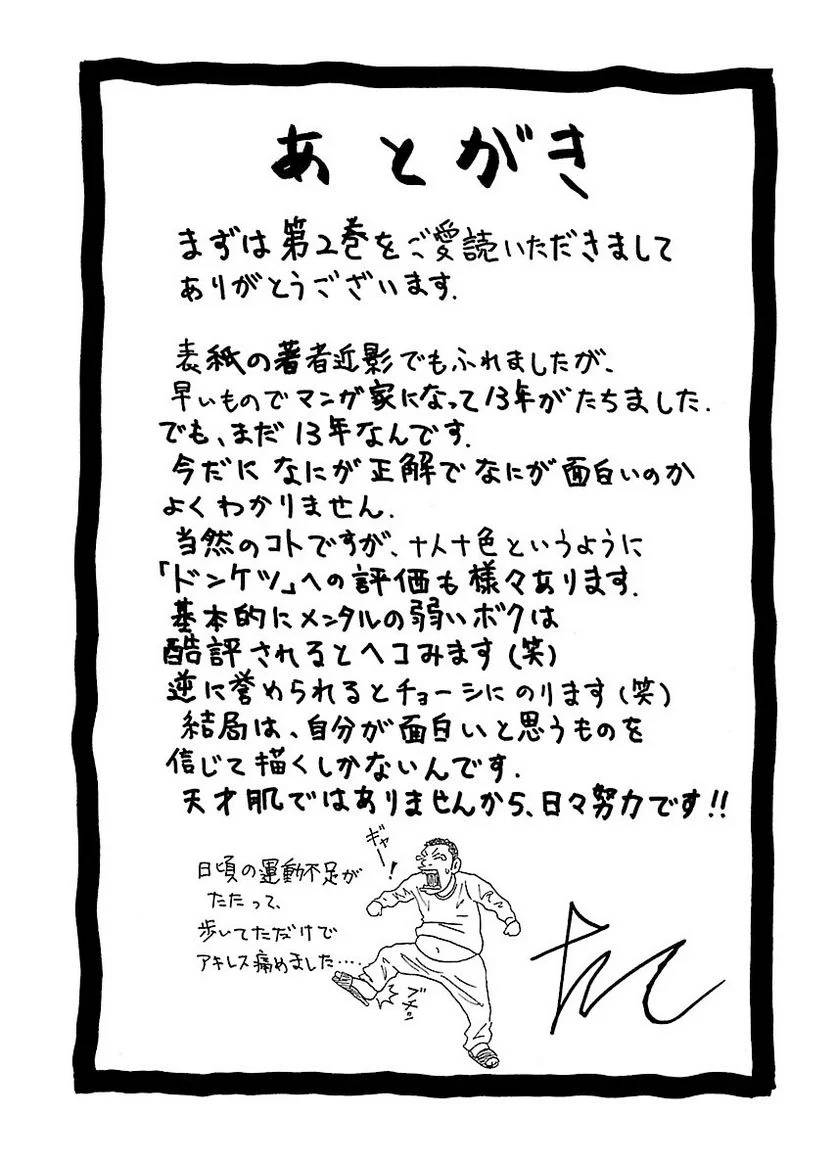 あとがき
まずは第2巻をご愛読いただきまして
ありがとうございます.
表紙の著者近影でもふれましたが、
早いものでマンガ家になって13年がたちました.
でも、まだ13年なんです.
今だになにが正解でなにが面白いのか
よくわかりません.
当然のコトですが、十人十色というように
「ドンケツ」への評価も様々あります.
基本的にメンタルの弱いボクは
酷評されるとヘコみます(笑)
逆に誉められるとチョーシにのります(笑)
結局は、自分が面白いと思うものを
信じて描くしかないんです.
天才肌ではありませんから、日々努力です!!
ギャー!
日頃の運動不足が
たたって、
歩いてただけで
アキレス痛めました….
ブチッ